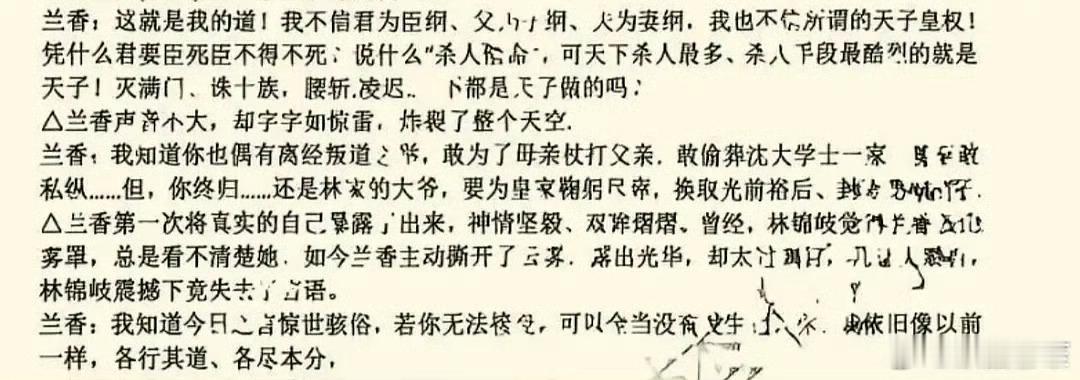 兰香：这就是我的道！我不信君为臣纲、父为子纲、夫为妻纲，我也不信所谓的天子皇权！
凭什么君要臣死臣不得不死？说什么“杀人偿命”，可天下杀人最多、杀人手段最酷烈的就是
天子！灭满门、诛十族，腰斩凌迟.. 不都是天子做的吗？
△兰香声音不大，却字字如惊雷，炸裂了整个天空.
兰香：我知道你也偶有离经叛道之举，敢为了母亲杖打父亲.敢偷葬沈大学士一家 甚至敢
私纵......但，你终归......还是林家的大爷，要为皇家鞠躬尽瘁，换取光前裕后、封
△兰香第一次将真实的自己暴露了出来，神情坚毅、双眸熠熠。曾经，林锦岐觉得兰香
雾罩，总是看不清楚她.如今兰香主动撕开了云雾.露出光华，却太过 人
林锦岐震撼下竟失去了言语。
兰香：我知道今日之言惊世骇俗，若你无法接受，可以全当没有发生 依旧像以前
一样，各行其道、各尽本分，